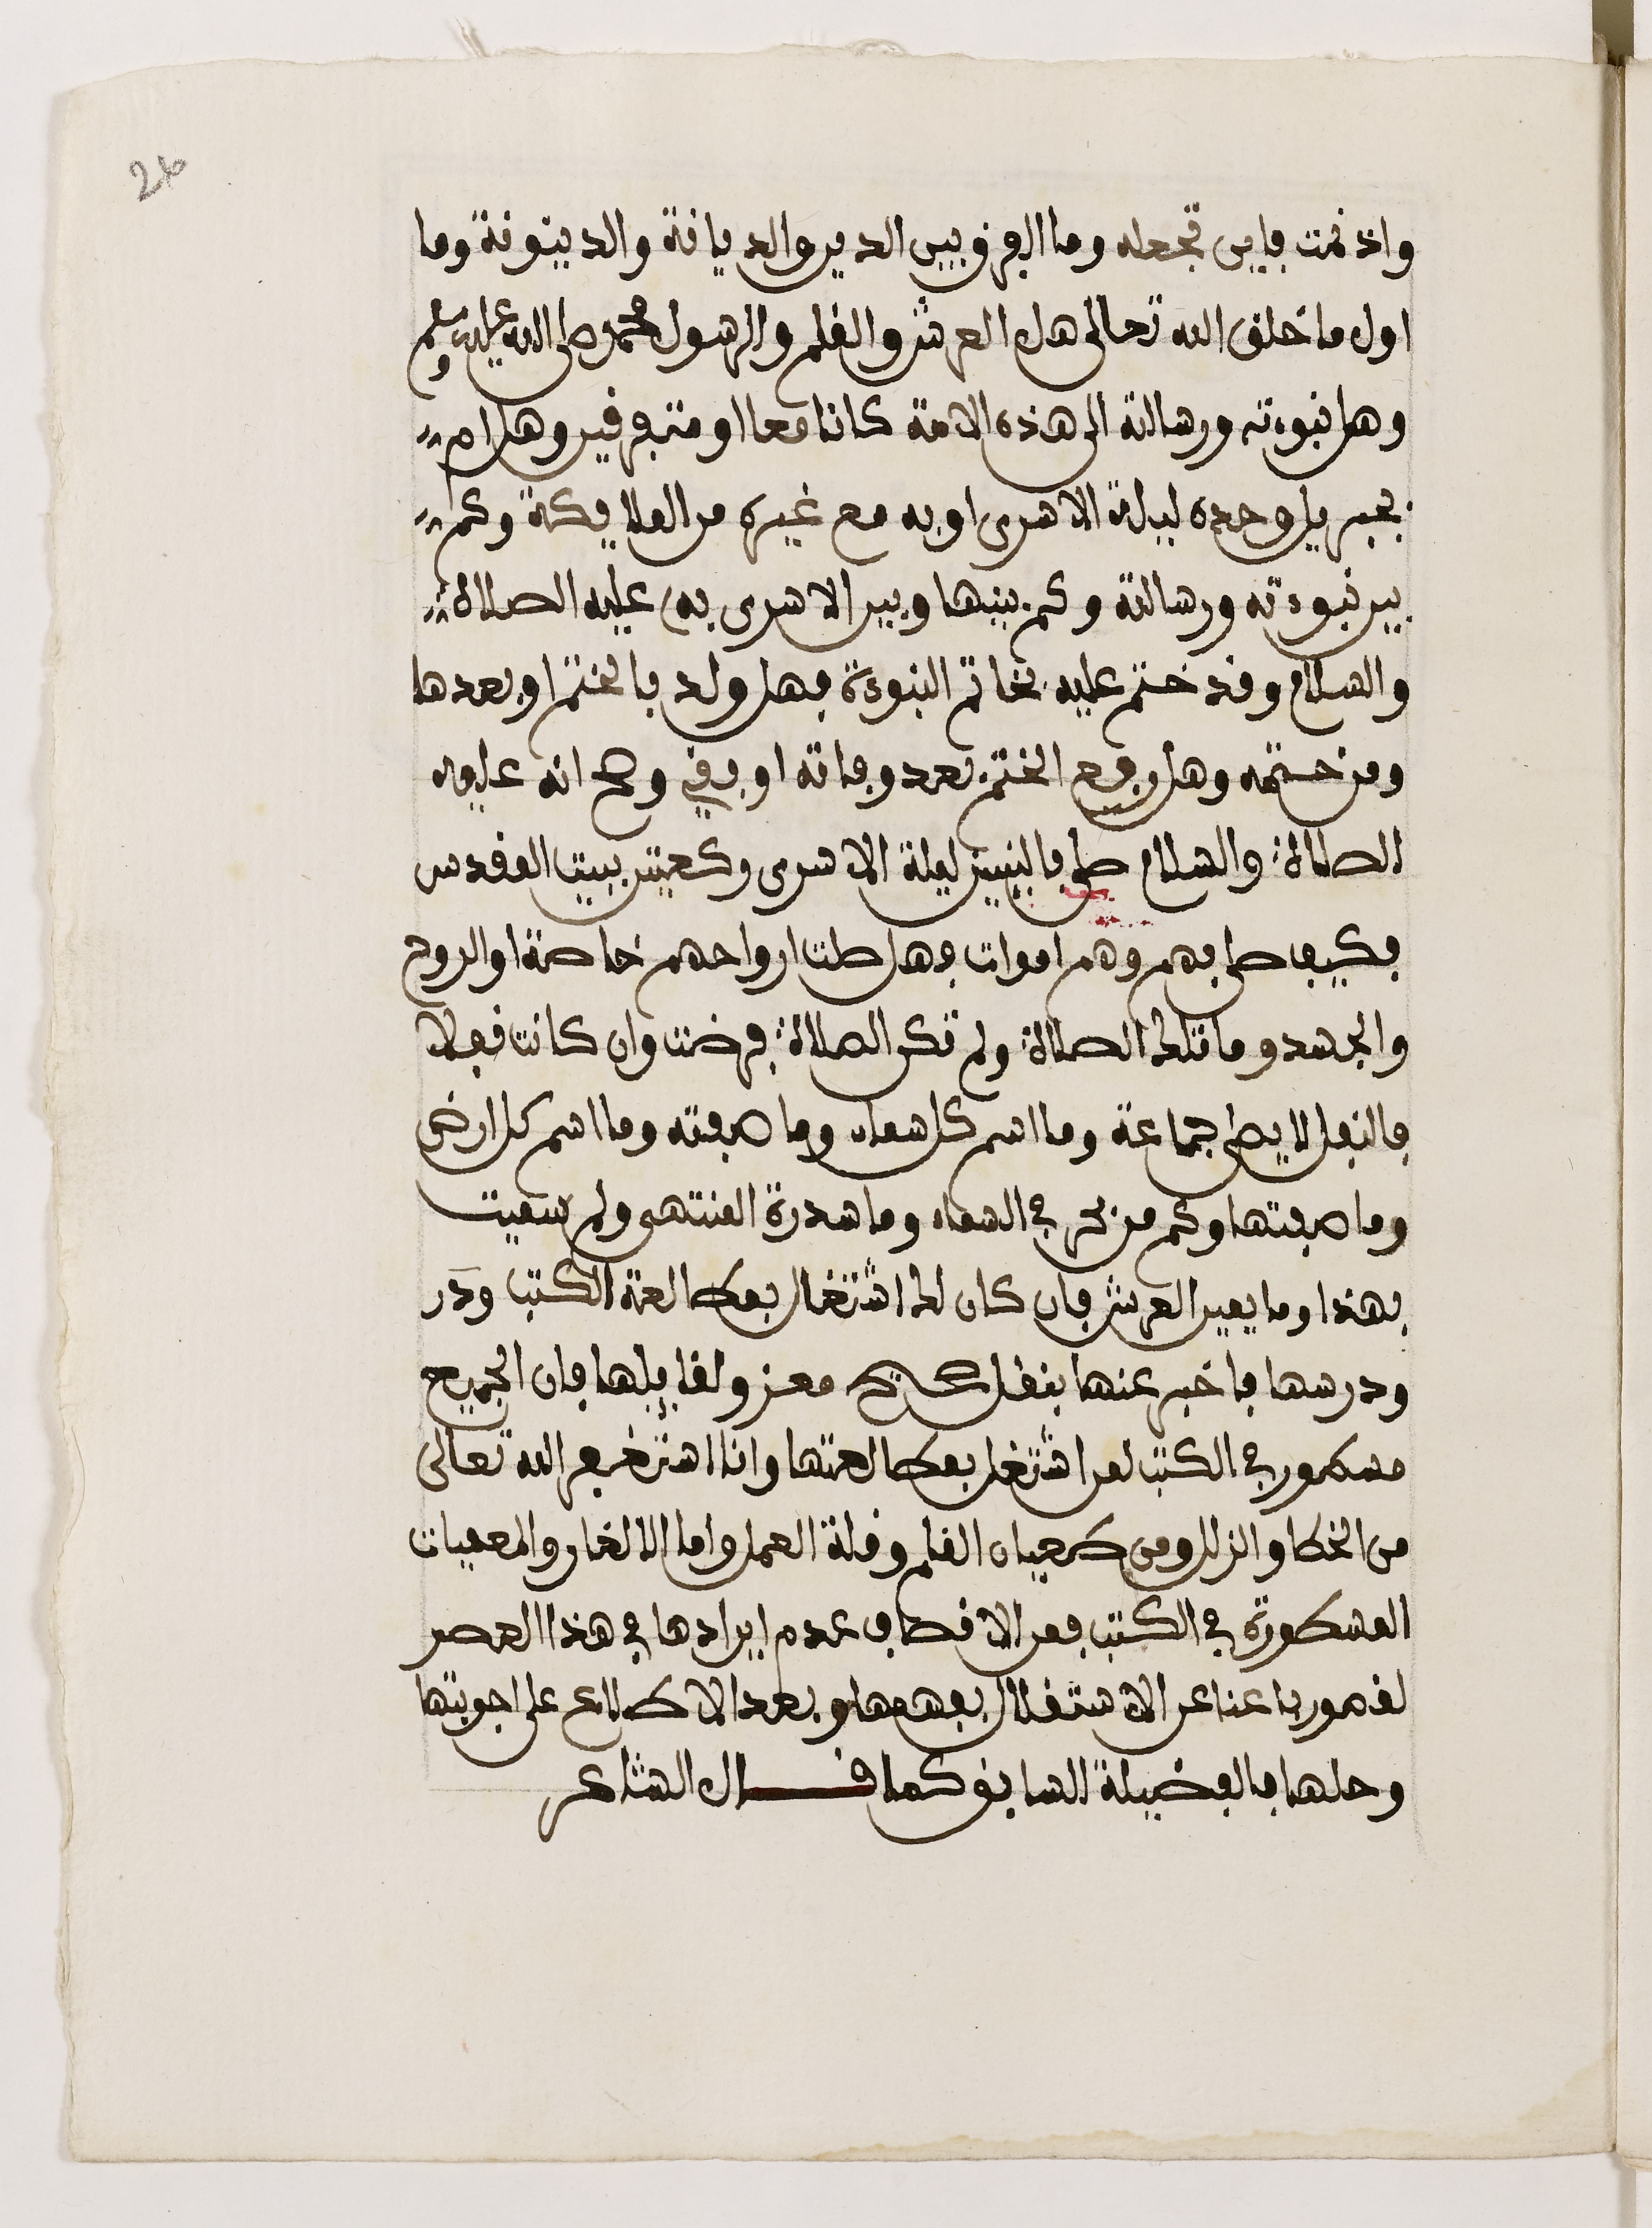 26
واذ نمت فاين تجعله وما الفرق بين الدين والديانة والدينونة وما
اول ما خلق الله تعالى هل العرش والقلم والرسول محمد صلى الله عليه وسلم
وهل نبوءته ورسالته الى هذه الامة كانا معا او متفرقين وهل ام
بجبريل وحده ليلة الاسرى او به مع غيره من الملايكة وكم
بين نبوءته ورسالته وكم بينها وبين الاسرى به عليه الصلاة
والسلام وقد ختم عليه بخاتم النبوءة فهل ولد بالختم او بعدها
ومن ختمه وهل رفع الختم بعد وفاته او بقي وصح انه عليه
الصلاة والسلام صلى بالنبيين ليلة الاسرى ركعتين ببيت المقدس
فكيف صلى بهم وهم اموات فهل صلت ارواحهم خاصة او الروح
والجسد وما تلك الصلاة ولم تكن الصلاة فرضت وان كانت نفلا
فالنفل لا يصلى جماعة وما اسم كل سماء وما صفته وما اسم كل ارض
وما صفتها وكم من بحر في السماء وما سدرة المنتهى ولم سميت
بهذا وما يمين العرش فان كان لك اشتغال بمطالعة الكتب ودر
ودرسها فاخبر عنها بنقل صحيح معزو لقايلها فان الجميع
مسطور في الكتب لمن اشتغل بمطالعتها وانا استغفر الله تعالى
من الخطا والزلل ومن طغيان القلم وقلة العمل واما الالغاز والمعميات
المسطورة في الكتب فمن الانصاف عدم ايرادها في هذا العصر
لقصورباعنا عن الاستقلال بفهمها وبعد الاطلاع على اجوبتها
وحلها فالفضيلة للسابق كما قال الشاعر